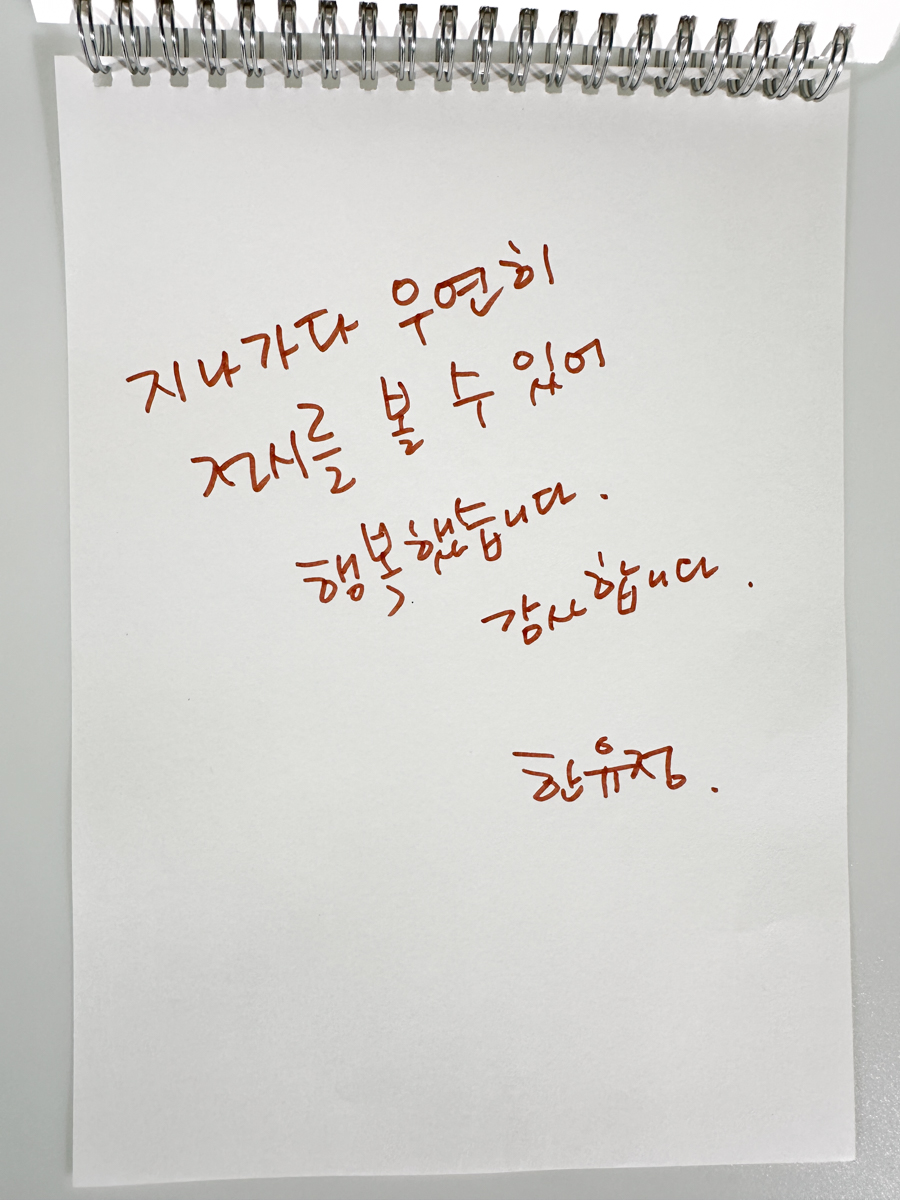 지나가다 우연히
전시를 볼 수 있어
행복했습니다.
감사합니다.
한유정.